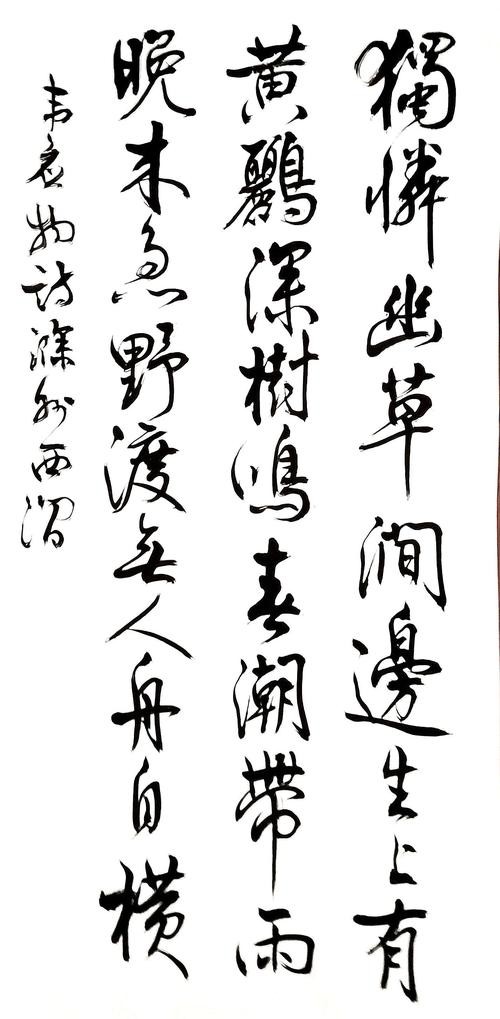 獨憐幽草澗邊生上有
黄鸝深樹鳴春潮帶雨
晚来急野渡無人舟自橫
韦應物詩滁州西澗